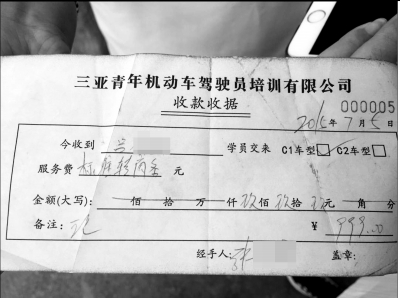 三亚青年机动车驾驶员培训有限公司
收款收据
000005
2015年7月5日
今收到 学员交来 C1车型 C2车型
服务费 元
金额(大写): 佰 拾 万 仟 玖佰 玖拾 玖元 角 分
备注: ¥ 999.00
经手人: 盖章: